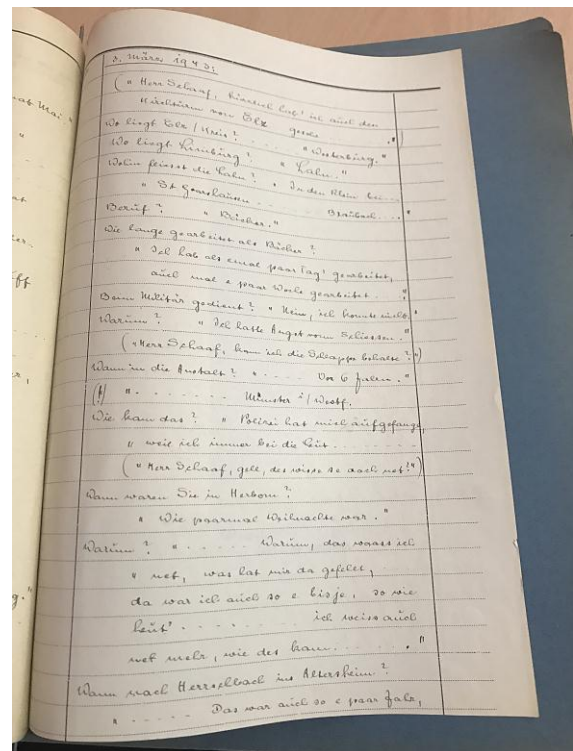 3. März 1943:
(" Herr Schaaf, hab' ich auch den
vom Elz .")
Wo liegt Elz / Kreis? . . . " Westerburg."
Wo liegt Limburg? " Lahn."
Wohin fliesst die Lahn? " In den Rhein bei . . .
" St Goarshausen . . . . Braubach . . . "
Beruf? " Bäcker."
Wie lange gearbeitet als Bäcker?
" Ich hab als emal paar Tag' gearbeitet,
auch mal e paar Woche gearbeitet . . "
Beim Militär gedient? " Nein, ich konnte nicht."
Warum? " Ich hatte Angst vom Schiessen."
(" Herr Schaaf, kann ich die Schlappe behalte?")
Wann in die Anstalt? " . . . . Vor 6 Jahren."
" . . . . . . Münster i/Westf.
Wie kam das? " Polizei hat mich aufgefange,
" weil ich immer bei die Leut . . . . . . .
(" Herr Schaaf, gell, des wisse se aach net?")
Wann waren Sie in Herborn?
" Wie paarmal Weihnachte war."
Warum? " . . . . . Warum, das waass ich
" net, was hat mir da gefehlt,
da war ich auch so e bisje, so wie
heut' . . . . . . . ich weiss auch
net mehr, wie des kam . . . . . "
Wann nach Herrselbach ins Altersheim?
" . . . . . Das war auch so e paar Jahr,
ab Mai